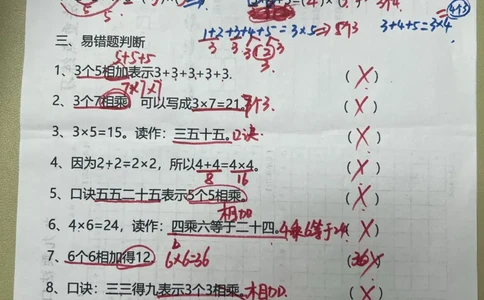 1+2+3+4+5=3×5⇒5个3
3+4+5=3×4
4个3
三、易错题判断
5+5+5
1、3个5相加表示3+3+3+3+3. (×)
7×7×7
2、3个7相乘 可以写成3×7=21。 (×)
3、3×5=15。读作：三五十五。口诀 (×)
4、因为2+2=2×2，所以4+4=4×4。 (×)
8 16
5、口诀五五二十五表示5个5相乘。 (×)
相加
6、4×6=24，读作：四乘六等于二十四。4乘6等于24 (×)
7、6个6相加得12 6×6=36 (×)
8、口诀：三三得九表示3个3相乘。相加. (×)